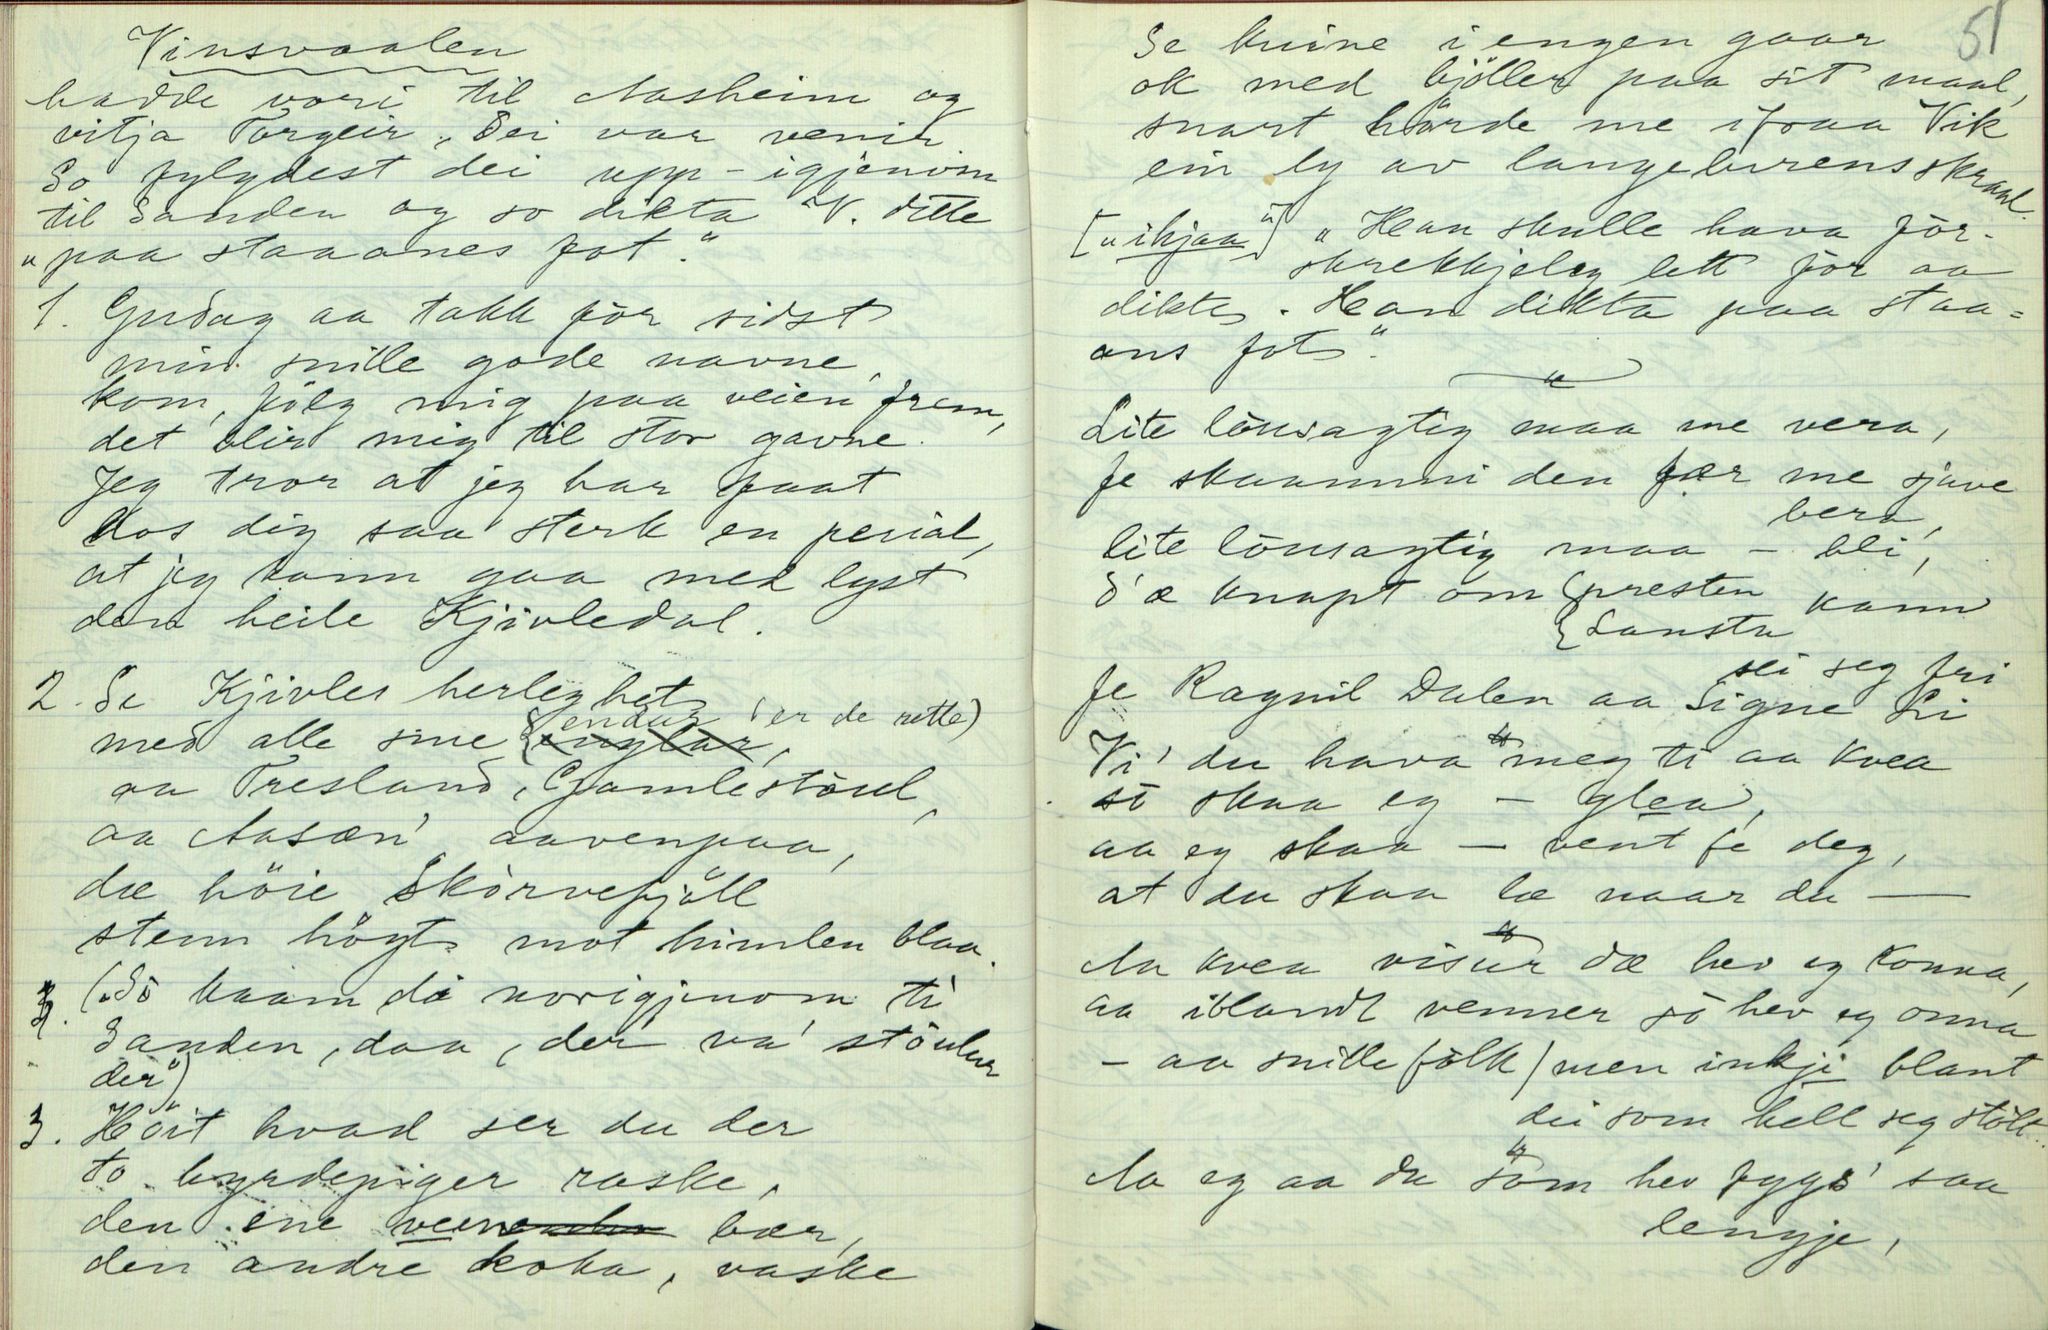 Vinsvaalen
hadde vori til Aasheim og
vitja Torgeir. Dei var venir
So fylgdest dei upp-igjenom
til Sanden og so dikta V. dette
"paa staaanes fot".
1. Gudag aa takk för sidst
min snille gode navne,
kom, fölg mig paa veien frem,
det blir mig til stor gavne.
Jeg tror at jeg har faat
hos dig saa sterk en pesial,
at jeg kann gaa med lyst
den heile Kjivledal.
2. Se Kjivles herleghet
med alle sine {englar, endur (er de rette)
aa Tresland, Gamlestöul,
aa Aasæn' aavenpaa,
dæ höie Skörvefjöll
stenn högt mot himlen blaa.
3. ("Sö kaam dei norigjenom ti
Sanden, daa, der va' stöuler
der")
3. Höit hvad ser du der
to hyrdepiger raske,
den ene veen bær,
den andre koka, vaske
51
Se kuine i engen gaar
ok med bjöller paa sit maal,
snart hörde me ifraa Vik
ein ly av langelurens skraal.
["ihjaa"] "Han skulle hava för-
skrekkjeleg lett för aa
dikte. Han dikta paa staa=
ans fot".
Lite lönsagtig maa me vera,
fe skaammi den fær me sjave
bera,
lite lönsagtig maa – bli,
d'æ knapt om {presten kann
{Lansta
sei seg fri
fe Ragnil Dalen aa Signe Li
Vi' du hava meg ti aa kvea
sö skaa eg – glea,
aa eg skaa – vent fe deg,
at du skaa læ naar du —
Aa kvea visur dæ hev eg konna,
aa iblandt venner sö hev eg onna
– aa snille fölk / men inkji blant
dei som hell seg stölt..
Aa eg aa du som hev fygs' saa
lengje,